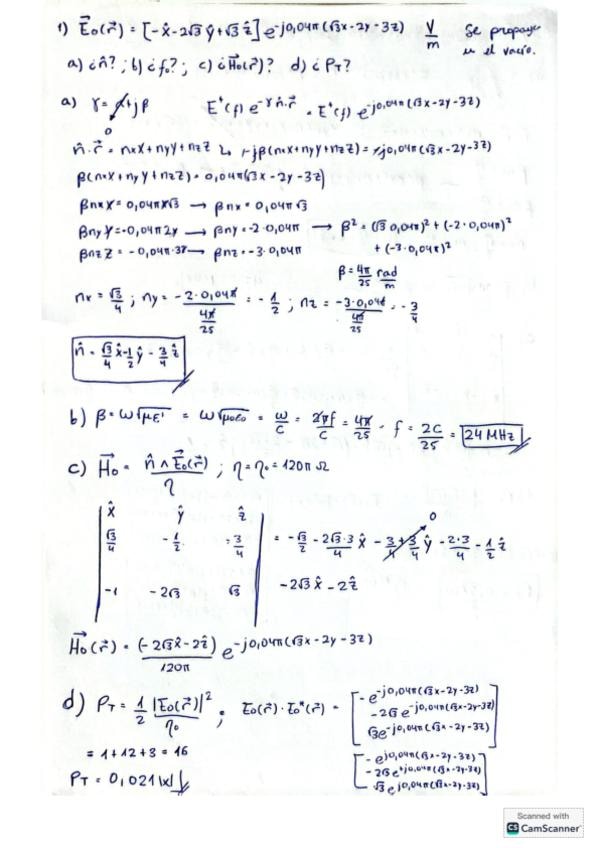 1) E⃗o(r⃗) = [-x̂-2√3 ŷ+√3 ẑ] e^-j0,04π(√3x-2y-3z) V/m Se propaga en el vacío.
a) ¿n̂? ; b) ¿fo? ; c) ¿H⃗o(r⃗)? d) ¿PT?
a) γ = α+jβ E⁺(f) e^-γ n̂·r⃗ = E⁺(f) e^-j0,04π(√3x-2y-3z)
0
n̂·r⃗ = nxX + nyY + nzZ ↳ -jβ(nxX+nyY+nzZ) = -j0,04π(√3x-2y-3z)
β(nxX+nyY+nzZ) = 0,04π(√3x-2y-3z)
βnxX = 0,04πX√3 → βnx = 0,04π√3
βnyY = -0,04π2y → βny = -2·0,04π → β² = (√3 0,04π)² + (-2·0,04π)²
βnzZ = -0,04π·3z → βnz = -3·0,04π + (-3·0,04π)²
β = 4π/25 rad/m
nx = √3/4 ; ny = -2·0,04π/(4π/25) = -1/2 ; nz = -3·0,04π/(4π/25) = -3/4
n̂ = √3/4 x̂ - 1/2 ŷ - 3/4 ẑ
b) β = ω√με = ω√μoεo = ω/c = 2πf/c = 4π/25 - f = 2c/25 = 24 MHz
c) H⃗o = n̂ ∧ E⃗o(r⃗)/η ; η = ηo = 120π Ω
x̂ ŷ ẑ 0
√3/4 -1/2 -3/4 = -√3/2 - 2√3·3/4 x̂ - 3/4 + 3/4 ŷ - 2·3/4 - 1/2 ẑ
-1 -2√3 √3 -2√3 x̂ - 2ẑ
H⃗o(r⃗) = (-2√3x̂-2ẑ)/120π e^-j0,04π(√3x-2y-3z)
d) PT = 1/2 |E⃗o(r⃗)|²/ηo ; E⃗o(r⃗)·E⃗o*(r⃗) = [-e^-j0,04π(√3x-2y-3z)
-2√3 e^-j0,04π(√3x-2y-3z)
√3e^-j0,04π(√3x-2y-3z)]
= 1+12+3 = 16 [-e^j0,04π(√3x-2y-3z)
-2√3 e^+j0,04π(√3x-2y-3z)
PT = 0,021 W √3 e^j0,04π(√3x-2y-3z)]
Scanned with
CS CamScanner